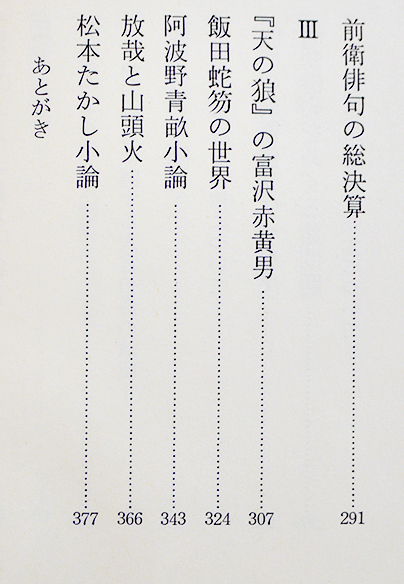 前衛俳句の総決算……291
Ⅲ
『天の狼』の富沢赤黄男……307
飯田蛇笏の世界……324
阿波野青畝小論……343
放哉と山頭火……366
松本たかし小論……377
あとがき